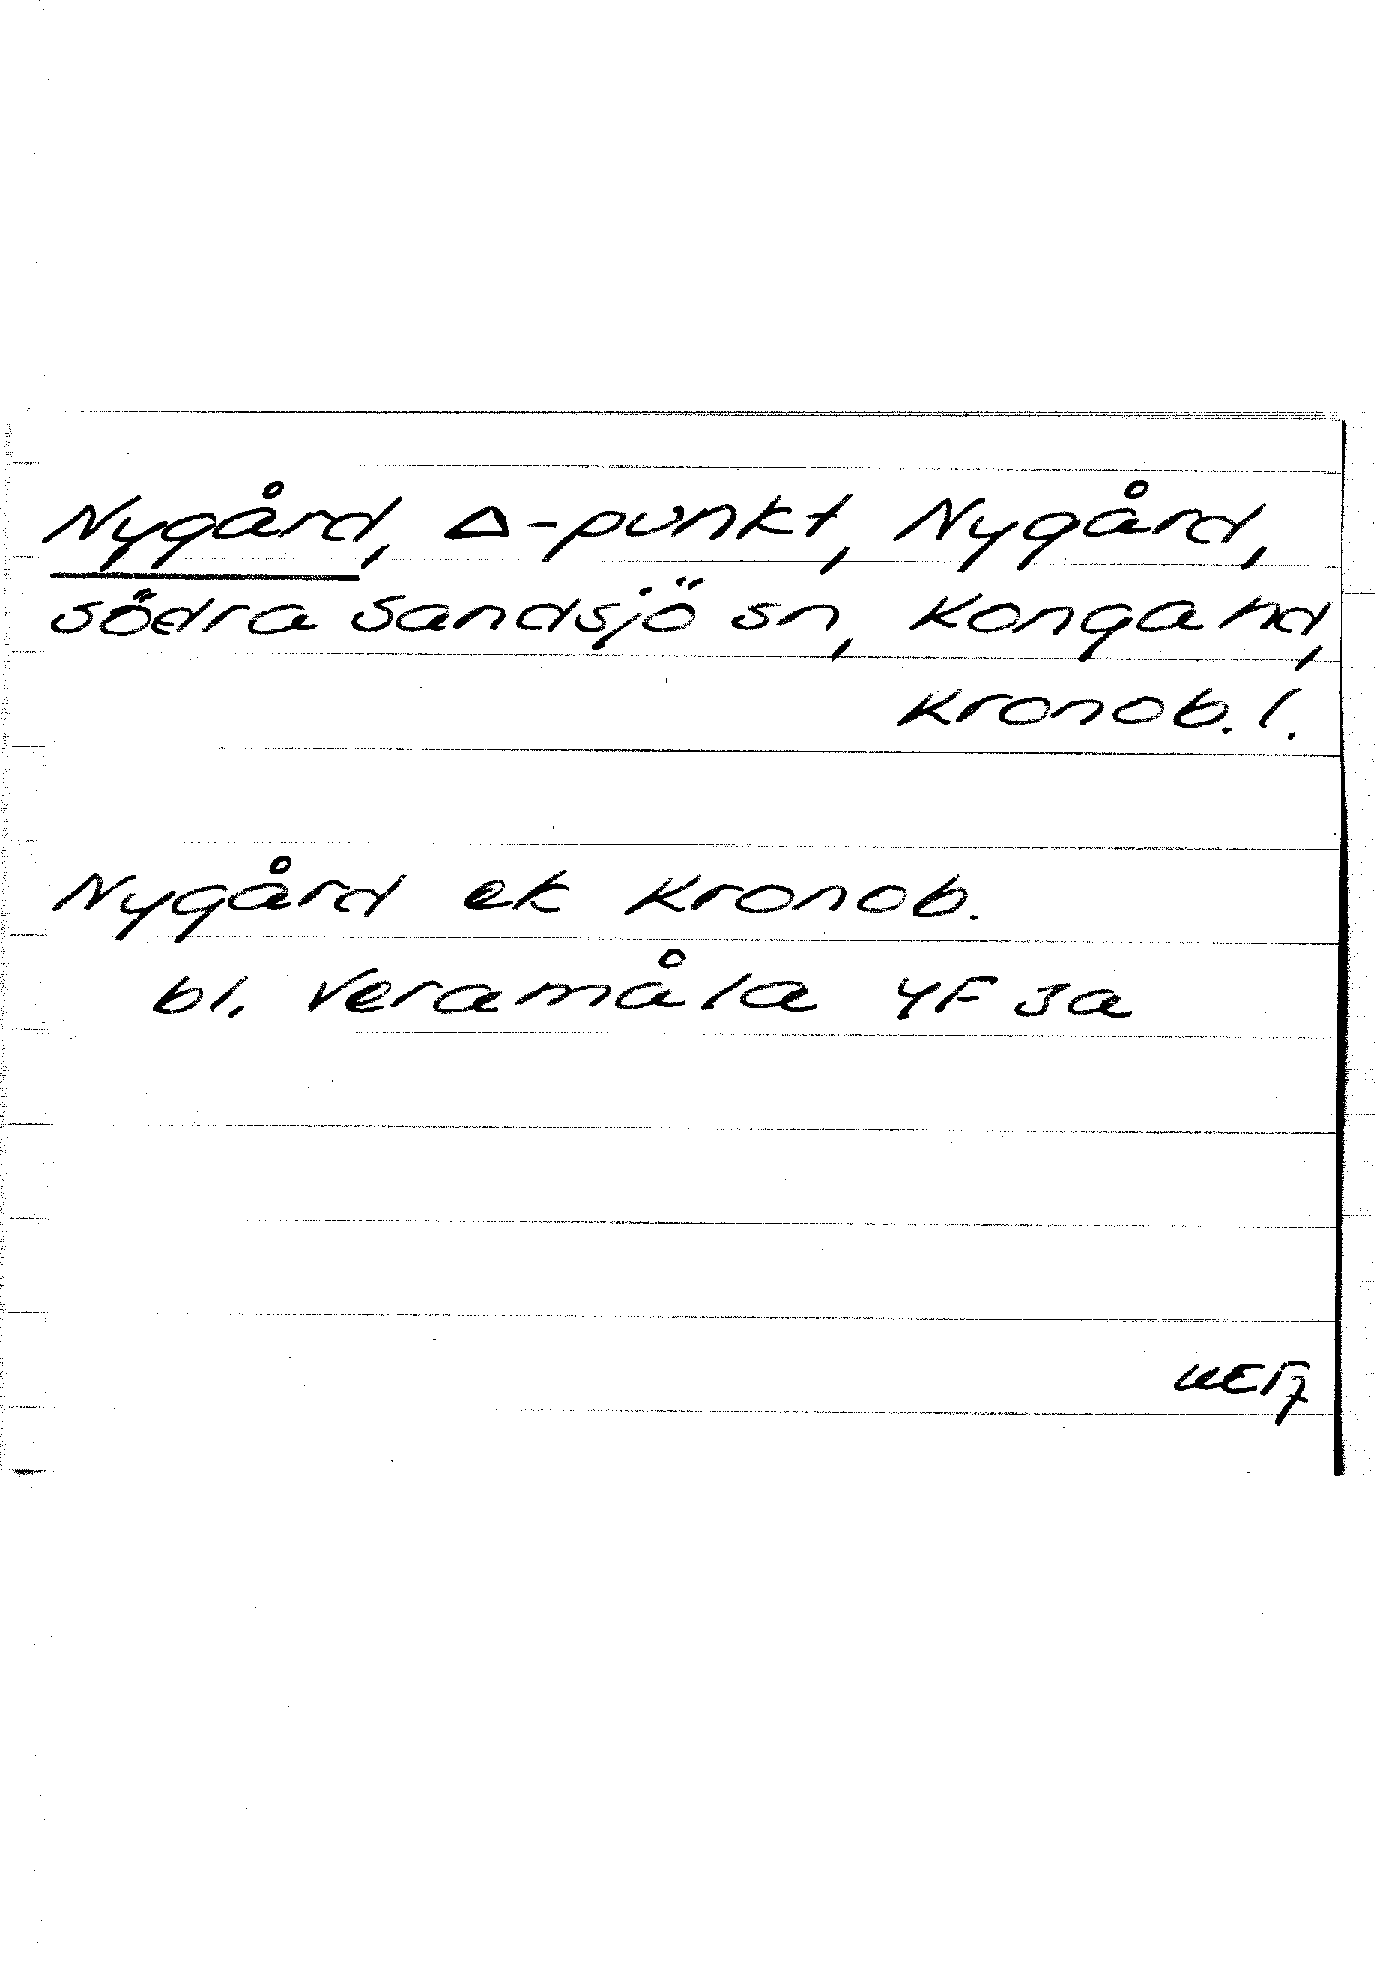 Nygård, Δ-punkt, Nygård,
södra Sandsjö sn, Konga hd,
Kronob. l.
Nygård ek Kronob.
bl. Veramåla 4F 3a